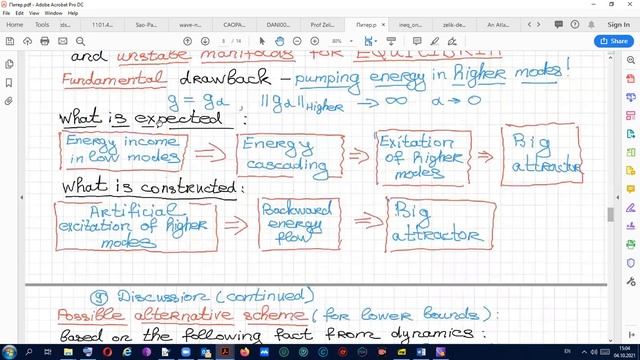 Питер.pdf - Adobe Acrobat Pro DC
Файл
Главная Инструменты
11.01.4...
Sao-Pa...
wave-n...
CAOPA...
DAN00...
Prof Zel...
Питер.p... ×
ineq_on...
zelik-de...
An Atla...
Войти
8 / 14
80%
and unstable manifolds for EQUILIBRIA
Fundamental drawback – pumping energy in higher modes!
g = gα , ||gα||Higher → ∞ α → 0
What is expected :
Energy income in low modes ⇒ Energy cascading ⇒ Exitation of higher modes ⇒ Big attractor
What is constructed:
Artificial excitation of higher modes ⇒ Backward energy flow ⇒ Big attractor
⑨ Discussion (continued)
Possible alternative scheme (for lower bounds) :
based on the following fact from dynamics :
15:04
04.10.2021